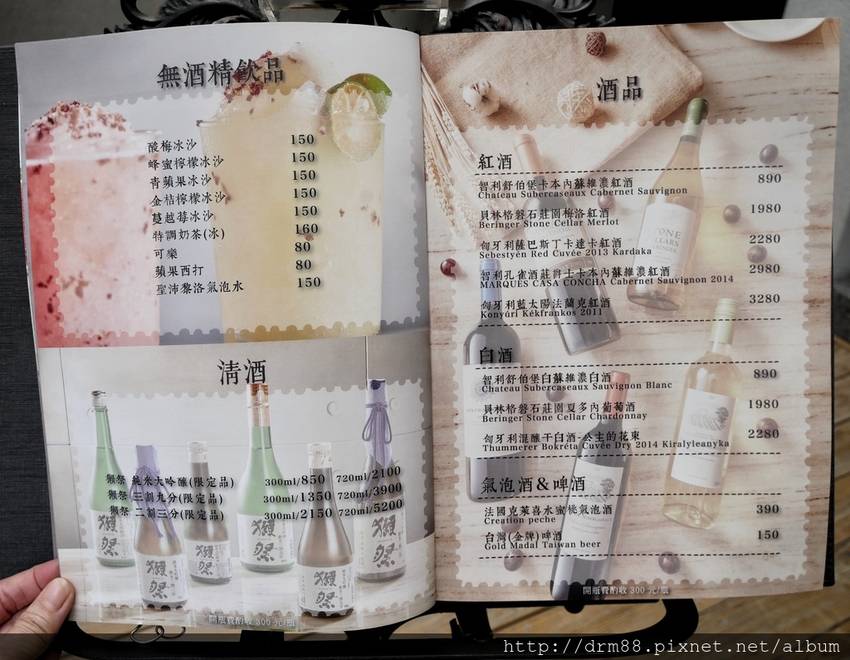 無酒精飲品
酸梅冰沙 150
蜂蜜檸檬冰沙 150
青蘋果冰沙 150
金桔檸檬冰沙 150
蔓越莓冰沙 150
特調奶茶(冰) 160
可樂 80
蘋果西打 80
聖沛黎洛氣泡水 150
清酒
獺祭 純米大吟釀(限定品) 300ml/850 720ml/2100
獺祭 三割九分(限定品) 300ml/1350 720ml/3900
獺祭 二割三分(限定品) 300ml/2150 720ml/5200
獺祭
獺祭
獺祭
獺祭
開瓶費酌收 300 元/瓶
酒品
紅酒
智利舒伯堡卡本內蘇維濃紅酒 890
Chateau Subercaseaux Cabernet Sauvignon
貝林格磐石莊園梅洛紅酒 1980
Beringer Stone Cellar Merlot
匈牙利薩巴斯丁卡達卡紅酒 2280
Sebestyén Red Cuvée 2013 Kardaka
智利孔雀酒莊爵士卡本內蘇維濃紅酒 2980
MARQUES CASA CONCHA Cabernet Sauvignon 2014
匈牙利藍太陽法蘭克紅酒 3280
Konyári Kékfrankos 2011
白酒
智利舒伯堡白蘇維濃白酒 890
Chateau Subercaseaux Sauvignon Blanc
貝林格磐石莊園夏多內葡萄酒 1980
Beringer Stone Cellar Chardonnay
匈牙利混釀干白酒-公主的花束 2280
Thummerer Bokréta Cuvée Dry 2014 Kiralyleanyka
氣泡酒&啤酒
法國克萊喜水蜜桃氣泡酒 390
Creation peche
台灣(金牌)啤酒 150
Gold Madal Taiwan beer
開瓶費酌收 300 元/瓶
http://drm88.pixnet.net/album